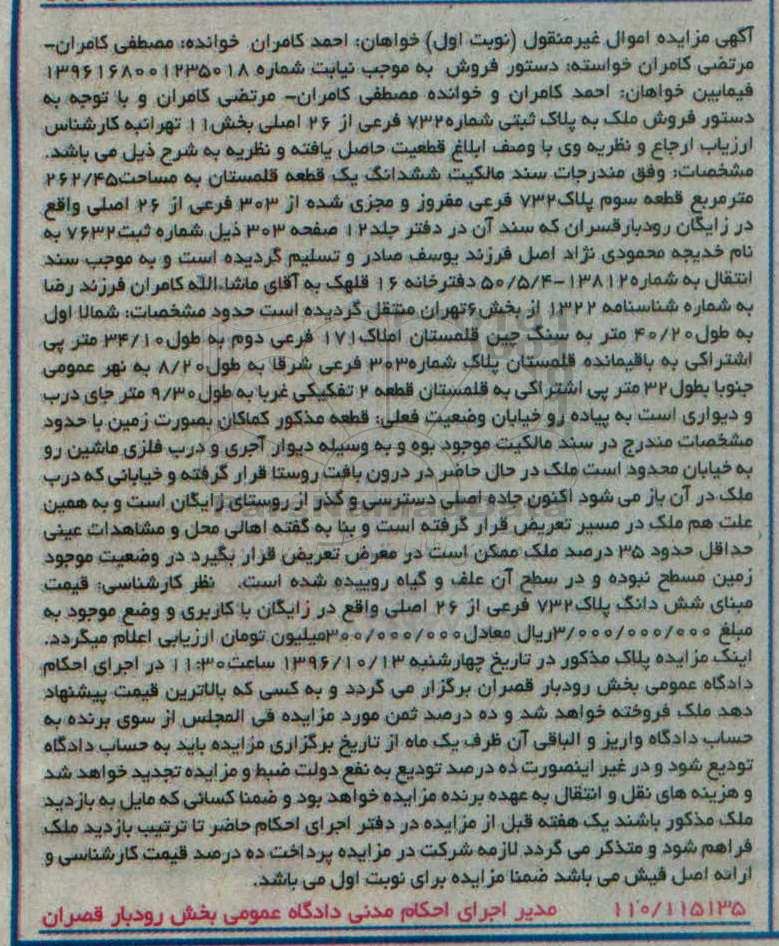 آگهی مزایده اموال غیرمنقول (نوبت اول) خواهان: احمد کامران خوانده: مصطفی کامران–
مرتضی کامران خواسته: دستور فروش به موجب نیابت شماره ۱۳۹۶۱۶۸۰۰۱۲۳۵۰۱۸
فیمابین خواهان: احمد کامران و خوانده مصطفی کامران– مرتضی کامران و با توجه به
دستور فروش ملک به پلاک ثبتی شماره۷۳۲ فرعی از ۲۶ اصلی بخش۱۱ تهرانبه کارشناس
ارزیاب ارجاع و نظریه وی با وصف ابلاغ قطعیت حاصل یافته و نظریه به شرح ذیل می باشد.
مشخصات: وفق مندرجات سند مالکیت ششدانگ یک قطعه قلمستان به مساحت۲۶۲/۴۵
مترمربع قطعه سوم پلاک۷۳۲ فرعی مفروز و مجزی شده از ۳۰۳ فرعی از ۲۶ اصلی واقع
در زایگان رودبارقسران که سند آن در دفتر جلد۱۲ صفحه ۳۰۳ ذیل شماره ثبت۷۶۳۲ به
نام خدیجه محمودی نژاد اصل فرزند یوسف صادر و تسلیم گردیده است و به موجب سند
انتقال به شماره۱۳۸۱۲–۵۰/۵/۴ دفترخانه ۱۶ قلهک به آقای ماشاءالله کامران فرزند رضا
به شماره شناسنامه ۱۳۲۲ از بخش۶تهران منتقل گردیده است حدود مشخصات: شمالا اول
به طول۴۰/۲۰ متر به سنگ چین قلمستان املاک۱۷۱ فرعی دوم به طول۳۴/۱۰ متر پی
اشتراکی به باقیمانده قلمستان پلاک شماره۳۰۳ فرعی شرقا به طول۸/۲۰ به نهر عمومی
جنوبا بطول۳۲ متر پی اشتراکی به قلمستان قطعه ۲ تفکیکی غربا به طول۹/۳۰ متر جای درب
و دیواری است به پیاده رو خیابان وضعیت فعلی: قطعه مذکور کماکان بصورت زمین با حدود
مشخصات مندرج در سند مالکیت موجود بوه و به وسیله دیوار آجری و درب فلزی ماشین رو
به خیابان محدود است ملک در حال حاضر در درون بافت روستا قرار گرفته و خیابانی که درب
ملک در آن باز می شود اکنون جاده اصلی دسترسی و گذر از روستای زایگان است و به همین
علت هم ملک در مسیر تعریض قرار گرفته است و بنا به گفته اهالی محل و مشاهدات عینی
حداقل حدود ۳۵ درصد ملک ممکن است در معرض تعریض قرار بگیرد در وضعیت موجود
زمین مسطح نبوده و در سطح آن علف و گیاه روییده شده است. نظر کارشناسی: قیمت
مبنای شش دانگ پلاک۷۳۲ فرعی از ۲۶ اصلی واقع در زایگان با کاربری و وضع موجود به
مبلغ ۳/۰۰۰/۰۰۰/۰۰۰ریال معادل۳۰۰/۰۰۰/۰۰۰میلیون تومان ارزیابی اعلام میگردد.
اینک مزایده پلاک مذکور در تاریخ چهارشنبه ۱۳۹۶/۱۰/۱۳ ساعت۱۱:۳۰ در اجرای احکام
دادگاه عمومی بخش رودبار قصران برگزار می گردد و به کسی که بالاترین قیمت پیشنهاد
دهد ملک فروخته خواهد شد و ده درصد ثمن مورد مزایده فی المجلس از سوی برنده به
حساب دادگاه واریز و الباقی آن ظرف یک ماه از تاریخ برگزاری مزایده باید به حساب دادگاه
تودیع شود و در غیر اینصورت ده درصد تودیع به نفع دولت ضبط و مزایده تجدید خواهد شد
و هزینه های نقل و انتقال به عهده برنده مزایده خواهد بود و ضمنا کسانی که مایل به بازدید
ملک مذکور باشند یک هفته قبل از مزایده در دفتر اجرای احکام حاضر تا ترتیب بازدید ملک
فراهم شود و متذکر می گردد لازمه شرکت در مزایده پرداخت ده درصد قیمت کارشناسی و
ارائه اصل فیش می باشد ضمنا مزایده برای نوبت اول می باشد.
۱۱۰/۱۱۵۱۳۵ مدیر اجرای احکام مدنی دادگاه عمومی بخش رودبار قصران